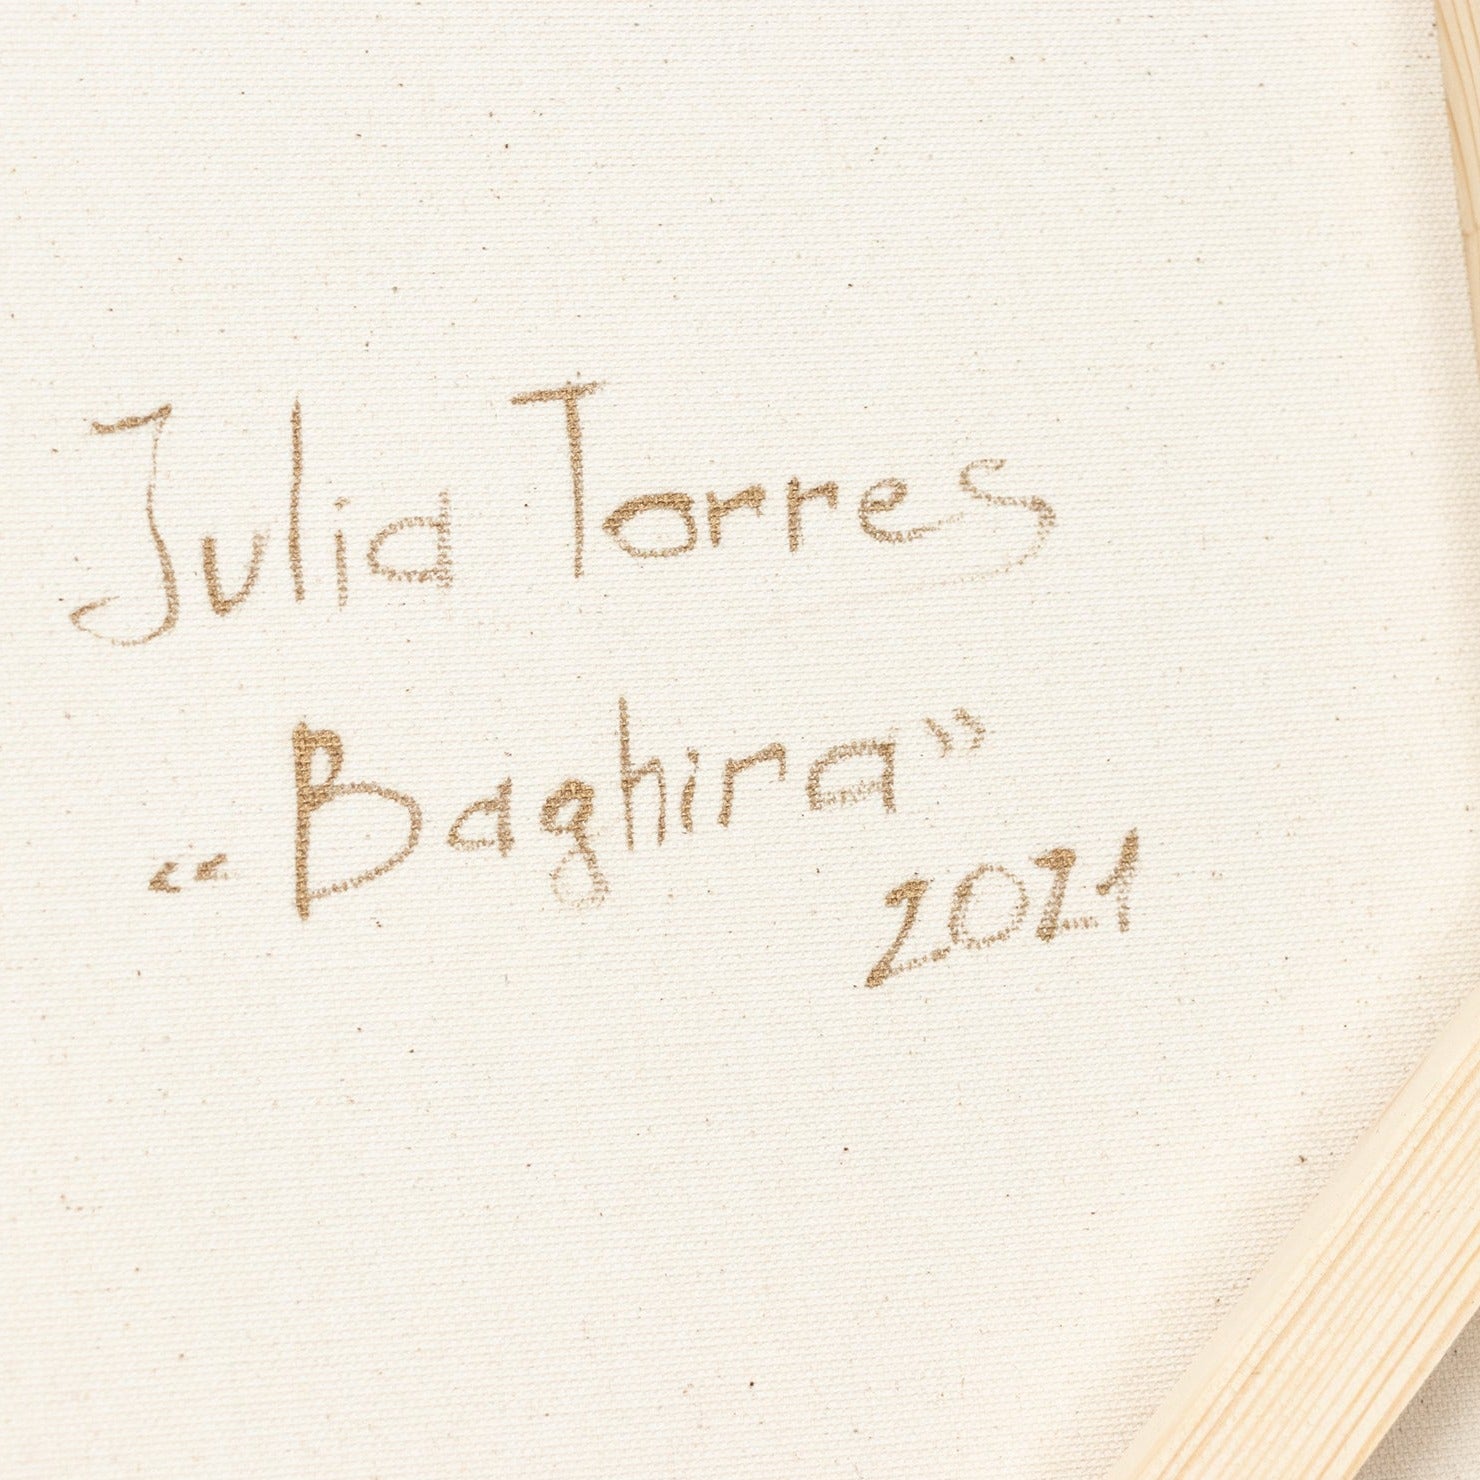 Julia Torres
„Baghira”
2021